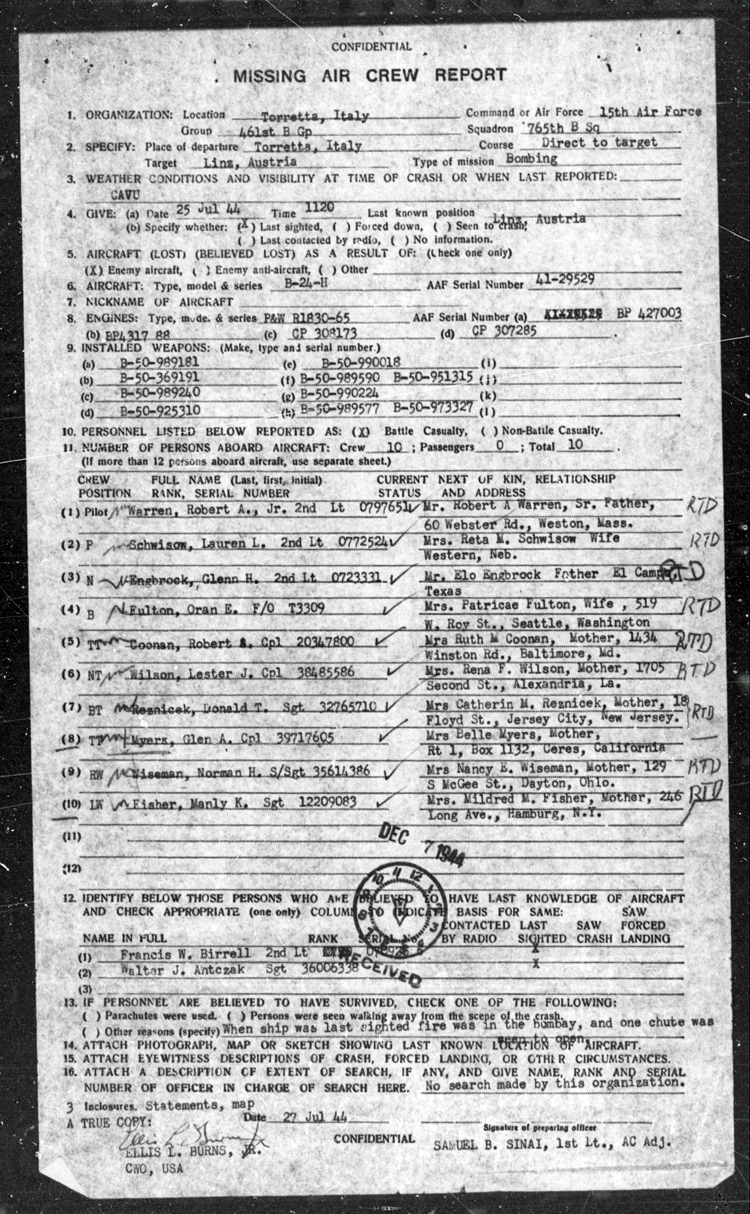 CONFIDENTIAL
MISSING AIR CREW REPORT
1. ORGANIZATION: Location Torretta, Italy Command or Air Force 15th Air Force
Group 461st B Gp Squadron 765th B Sq
2. SPECIFY: Place of departure Torretta, Italy Course Direct to target
Target Linz, Austria Type of mission Bombing
3. WEATHER CONDITIONS AND VISIBILITY AT TIME OF CRASH OR WHEN LAST REPORTED:
CAVU
4. GIVE: (a) Date 25 Jul 44 Time 1120 Last known position Linz, Austria
(b) Specify whether: (X) Last sighted, ( ) Forced down, ( ) Seen to crash,
( ) Last contacted by radio, ( ) No information.
5. AIRCRAFT (LOST) (BELIEVED LOST) AS A RESULT OF: (Check one only)
(X) Enemy aircraft, ( ) Enemy anti-aircraft, ( ) Other
6. AIRCRAFT: Type, model & series B-24-H AAF Serial Number 41-29529
7. NICKNAME OF AIRCRAFT
8. ENGINES: Type, mode. & series P&W R1830-65 AAF Serial Number (a) BP 427003
(b) BP4317 88 (c) CP 308173 (d) CP 307285
9. INSTALLED WEAPONS: (Make, type and serial number.)
(a) B-50-989181 (e) B-50-990018 (i)
(b) B-50-369191 (f) B-50-989590 B-50-951315 (j)
(c) B-50-989240 (g) B-50-990224 (k)
(d) B-50-925310 (h) B-50-989577 B-50-973327 (l)
10. PERSONNEL LISTED BELOW REPORTED AS: (X) Battle Casualty, ( ) Non-Battle Casualty.
11. NUMBER OF PERSONS ABOARD AIRCRAFT: Crew 10 ; Passengers 0 ; Total 10
(If more than 12 persons aboard aircraft, use separate sheet.)
CREW FULL NAME (Last, first, initial) CURRENT NEXT OF KIN, RELATIONSHIP
POSITION RANK, SERIAL NUMBER STATUS AND ADDRESS
(1) Pilot Warren, Robert A., Jr. 2nd Lt 0797651 Mr. Robert A Warren, Sr. Father, RTD
60 Webster Rd., Weston, Mass.
(2) P Schwisow, Lauren L. 2nd Lt 0772524 Mrs. Reta M. Schwisow Wife RTD
Western, Neb.
(3) N Engbrock, Glenn H. 2nd Lt 0723331 Mr. Elo Engbrock Father El Campo RTD
Texas
(4) B Fulton, Oran E. F/O T3309 Mrs. Patricae Fulton, Wife , 519 RTD
W. Roy St., Seattle, Washington
(5) TT Coonan, Robert Cpl 20347800 Mrs Ruth M Coonan, Mother, 1434 RTD
Winston Rd., Baltimore, Md.
(6) NT Wilson, Lester J. Cpl 38485586 Mrs. Rena F. Wilson, Mother, 1705 RTD
Second St., Alexandria, La.
(7) BT Reznicek, Donald T. Sgt 32765710 Mrs Catherin M. Reznicek, Mother, 18 RTD
Floyd St., Jersey City, New Jersey.
(8) Myers, Glen A. Cpl 39717605 Mrs Belle Myers, Mother,
Rt 1, Box 1132, Ceres, California
(9) RW Wiseman, Norman H. S/Sgt 35614386 Mrs Nancy E. Wiseman, Mother, 129 RTD
S McGee St., Dayton, Ohio.
(10) LW Fisher, Manly K. Sgt 12209083 Mrs. Mildred M. Fisher, Mother, 246 RTD
Long Ave., Hamburg, N.Y.
(11)
DEC 7 1944
(12)
12. IDENTIFY BELOW THOSE PERSONS WHO ARE BELIEVED TO HAVE LAST KNOWLEDGE OF AIRCRAFT
AND CHECK APPROPRIATE (one only) COLUMN TO INDICATE BASIS FOR SAME: SAW
CONTACTED LAST SAW FORCED
NAME IN FULL RANK SERIAL No. BY RADIO SIGHTED CRASH LANDING
(1) Francis W. Birrell 2nd Lt X
(2) Walter J. Antczak Sgt 36006338 X
RECEIVED
(3)
13. IF PERSONNEL ARE BELIEVED TO HAVE SURVIVED, CHECK ONE OF THE FOLLOWING:
( ) Parachutes were used. ( ) Persons were seen walking away from the scene of the crash.
( ) Other reasons (specify) When ship was last sighted fire was in the bombay, and one chute was
seen to open.
14. ATTACH PHOTOGRAPH, MAP OR SKETCH SHOWING LAST KNOWN LOCATION OF AIRCRAFT.
15. ATTACH EYEWITNESS DESCRIPTIONS OF CRASH, FORCED LANDING, OR OTHER CIRCUMSTANCES.
16. ATTACH A DESCRIPTION OF EXTENT OF SEARCH, IF ANY, AND GIVE NAME, RANK AND SERIAL
NUMBER OF OFFICER IN CHARGE OF SEARCH HERE. No search made by this organization.
3 Inclosures. Statements, map
A TRUE COPY: Date 27 Jul 44
Signature of preparing officer
Ellis L. Burns Jr
CONFIDENTIAL SAMUEL B. SINAI, 1st Lt., AC Adj.
ELLIS L. BURNS, JR.
CWO, USA